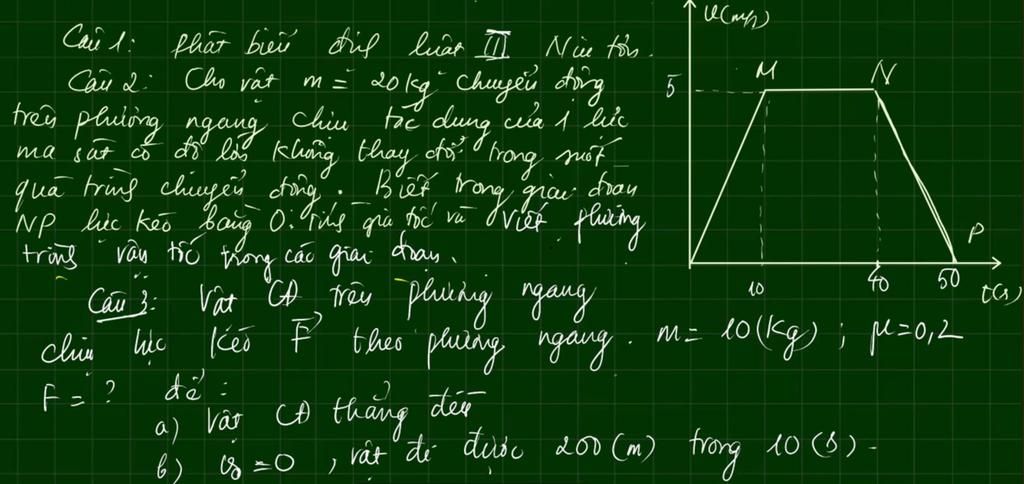 Câu 1: Phát biểu định luật III Niu tơn.
Câu 2: Cho vật m = 20kg chuyển động
trên phương ngang chịu tác dụng của 1 lực
ma sát có độ lớn không thay đổi trong suốt
quá trình chuyển động. Biết trong giai đoạn
NP lực kéo bằng 0. Tính gia tốc và viết phương
trình vận tốc trong các giai đoạn.
Câu 3: Vật CĐ trên phương ngang
chịu lực kéo F theo phương ngang. m = 10(kg); μ=0,2
F = ? để:
a) Vật CĐ thẳng đều
b) v₀ = 0, vật đi được 200(m) trong 10(s).
v(m/s)
M N
5
P
10 40 50 t(s)